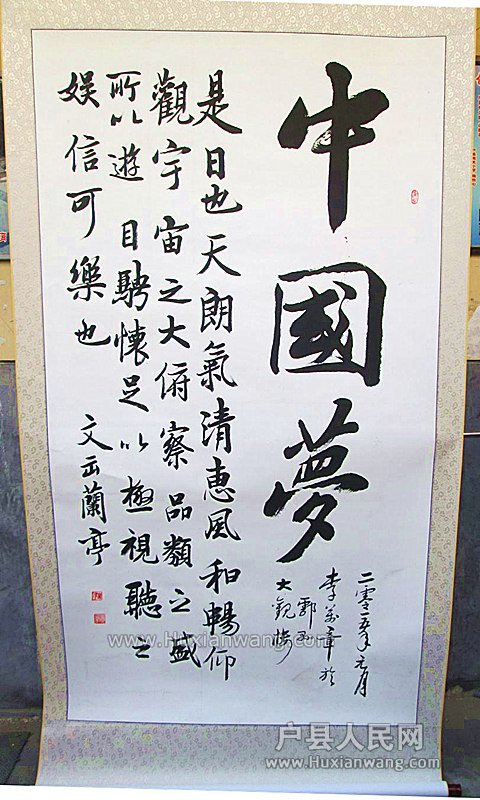 中國夢
二零一五年元月
李萬章於
大觀樓
是日也天朗氣清恵風和暢仰
觀宇宙之大俯察品類之盛
所以遊目騁懷足以極視聽之
娱信可樂也 文出蘭亭
www.Huxianwang.com
户县人民网
www.Huxianwang.com